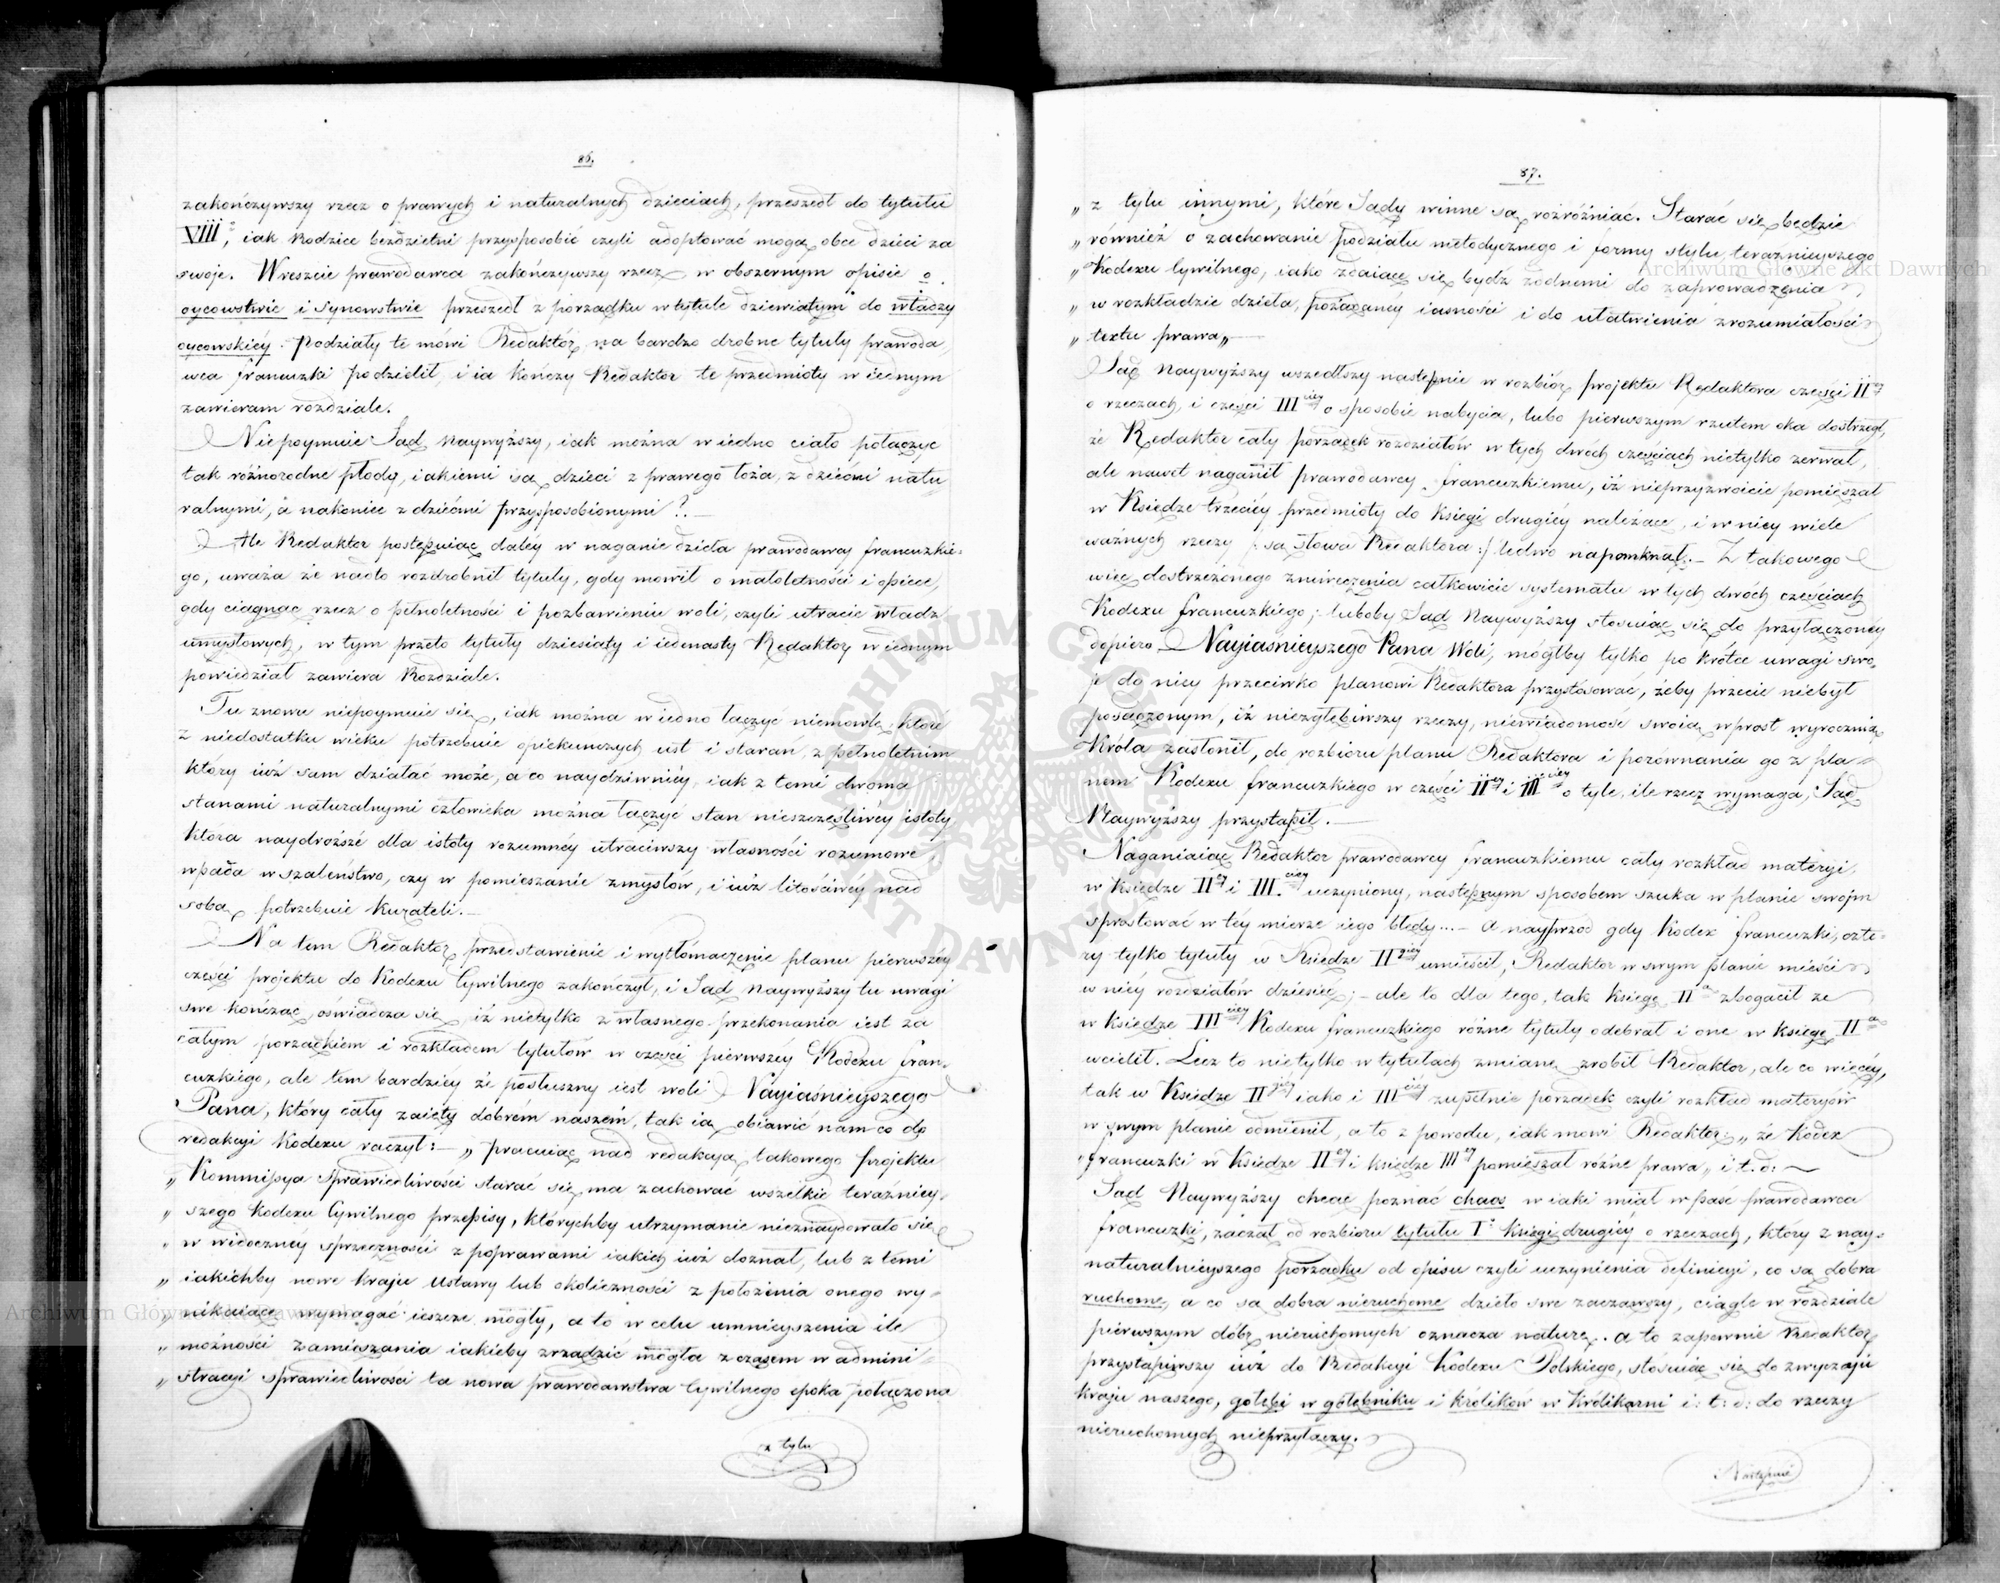 86.
zakończywszy rzecz o prawych i naturalnych dzieciach, przeszedł do tytułu
VIII, iak Rodzice bezdzietni przysposobić czyli adoptować mogą obce dzieci za
swoje. Wreszcie prawodawca zakończywszy rzecz w obszernym opisie o
oycowstwie i synowstwie przeszedł z porządku w tytule dziewiątym do władzy
oycowskiey. Podziały te mówi Redaktor, na bardzo drobne tytuły prawoda„
wca francuzki podzielił, i ia kończy Redaktor te przedmioty w iednym
zawieram rozdziale.
Niepoymuie Sąd Naywyższy, iak można w iedno ciało połączyć
tak różnorodne płody, iakiemi są dzieci z prawego łoża, z dziećmi natu„
ralnymi, a nakoniec z dziećmi przysposobionymi?.—
Ale Redaktor postępuiąc daléy w naganie dzieła prawodawcy francuzkie„
go, uważa że nadto rozdrobnił tytuły, gdy mówił o małoletności i opiece,
gdy ciągnąc rzecz o pełnoletności i pozbawieniu woli, czyli utracie władz
umysłowych, w tym przeto tytuły dziesiąty i iedenasty Redaktor w iednym
powiedział zawiera Rozdziale.
Tu znowu niepoymuie się, iak można w iedno łączyć niemowlę, które
z niedostatku wieku potrzebuie opiekuńczych ust i starań, z pełnoletnim
który iuż sam działać może, a co naydziwniéy, iak z temi dwoma
stanami naturalnymi człowieka można łączyć stan nieszczęśliwéy istoty
która naydroższe dla istoty rozumnéy utraciwszy własności rozumowe,
wpada w szaleństwo, czy w pomieszanie zmysłów, i iuż litościwéy nad
sobą potrzebuie Kurateli.—
Na tem Redaktor, przedstawienie i wytłómaczenie planu pierwszéy
części projektu do Kodexu Cywilnego zakończył, i Sąd Naywyższy tu uwagi
swe kończąc, oświadcza się, iż nietylko z własnego przekonania iest za
całym porządkiem i rozkładem tytułów w części pierwszéy Kodexu fran„
cuzkiego, ale tem bardziéy że posłuszny iest woli Nayiaśnieyszego
Pana, który cały zaięty dobrém naszém, tak ią obiawić nam co do
redakcyi Kodexu raczył: — „pracuiąc nad redakcyą takowego projektu
„Kommissya Sprawiedliwości starać się ma zachować wszelkie teraźniey„
„szego Kodexu Cywilnego przepisy, którychby utrzymanie nieznaydowało się
„w widoczney sprzeczności z poprawami iakich iuż doznał, lub z temi
„iakichby nowe kraju Ustawy lub okoliczności z położenia onego wy„
„nikaiące wymagać ieszcze mogły, a to w celu umnieyszenia ile
„możności zamieszania iakieby zrządzić mogła z czasem w admini„
„stracyi sprawiedliwości ta nowa prawodawstwa Cywilnego epoka połączona
z tylu
87.
„z tylu innymi, które Sądy winne są rozróżniać. Starać się będzie
„również o zachowanie podziału metodycznego i formy stylu, teraźnieyszego
„Kodexu Cywilnego, iako zdaiące się bydź zdolnemi do zaprowadzenia
„w rozkładzie dzieła, pożądaney iasności i do ułatwienia zrozumiałości
„textu prawa„—
Sąd Naywyższy wszedłszy następnie w rozbiór projektu Redaktora części IIey
o rzeczach, i części IIIciey o sposobie nabycia, lubo pierwszym rzutem oka dostrzegł,
że Redaktor cały porządek rozdziałów w tych dwóch częściach nietylko zerwał,
ale nawet naganił prawodawcy francuzkiemu, iż nieprzyzwoicie pomieszał
w Księdze trzeciéy przedmioty do księgi drugiéy należące, i w niey wiele
ważnych rzeczy /: są słowa Redaktora :/ ledwo napomknął.— Z takowego
więc dostrzeżonego zniweczenia całkowicie systematu w tych dwóch częściach
Kodexu francuzkiego; luboby Sąd Naywyższy stosuiąc się do przyłączoney
dopiero Nayiaśnieyszego Pana Woli, mógłby tylko po krótce uwagi swo„
je do niey przeciwko planowi Redaktora przystósować, żeby przecie niebył
posądzonym, iż niezgłębiwszy rzeczy, niewiadomość swoią wprost wyrocznią
Króla zasłonił, do rozbioru planu Redaktora i porównania go z pla„
nem Kodexu francuzkiego w części IIey i IIIciey o tyle, ile rzecz wymaga, Sąd
Naywyższy przystąpił.—
Naganiaiąc Redaktor prawodawcy francuzkiemu cały rozkład materyi,
w księdze IIey i IIIciey uczyniony, następnym sposobem szuka w planie swojm
sprostować w téy mierze iego błędy...— A nayprzod gdy Kodex francuzki, czte„
ry tylko tytuły w Księdze IIgiey umieścił, Redaktor w swym planie mieści
w niéy rozdziałów dziesięć;— ale to dla tego, tak księgę IIą zbogacił że
w księdze IIIciey Kodexu francuzkiego różne tytuły odebrał i one w księgę IIą
wcielił. Lecz to nietylko w tytułach zmianę zrobił Redaktor, ale co więcéy,
tak w Księdze IIgiey iako i IIIciey zupełnie porządek czyli rozkład materyów
w swym planie odmienił, a to z powodu, iak mówi Redaktor: „że Kodex
„francuzki w Księdze IIey i księdze IIIey pomieszał różne prawa„ i t. d: —
Sąd Naywyższy chcąc poznać chaos w iaki miał wpaść prawodawca
francuzki, zaczął od rozbioru tytułu Io księgi drugiéy o rzeczach, który z nay„
naturalnieyszego porządku od opisu czyli uczynienia definicyi, co są dobra
ruchome, a co są dobra nieruchome dzieło swe zacząwszy, ciągle w rozdziale
pierwszym dóbr nieruchomych oznacza naturę.. a to zapewnie Redaktor
przystąpiwszy iuż do Redakcyi Kodexu Polskiego, stosuiąc się do zwyczaju
kraju naszego, gołębi w gołębniku i królików w królikarni i: t: d: do rzeczy
nieruchomych nieprzyłączy.
Następnie